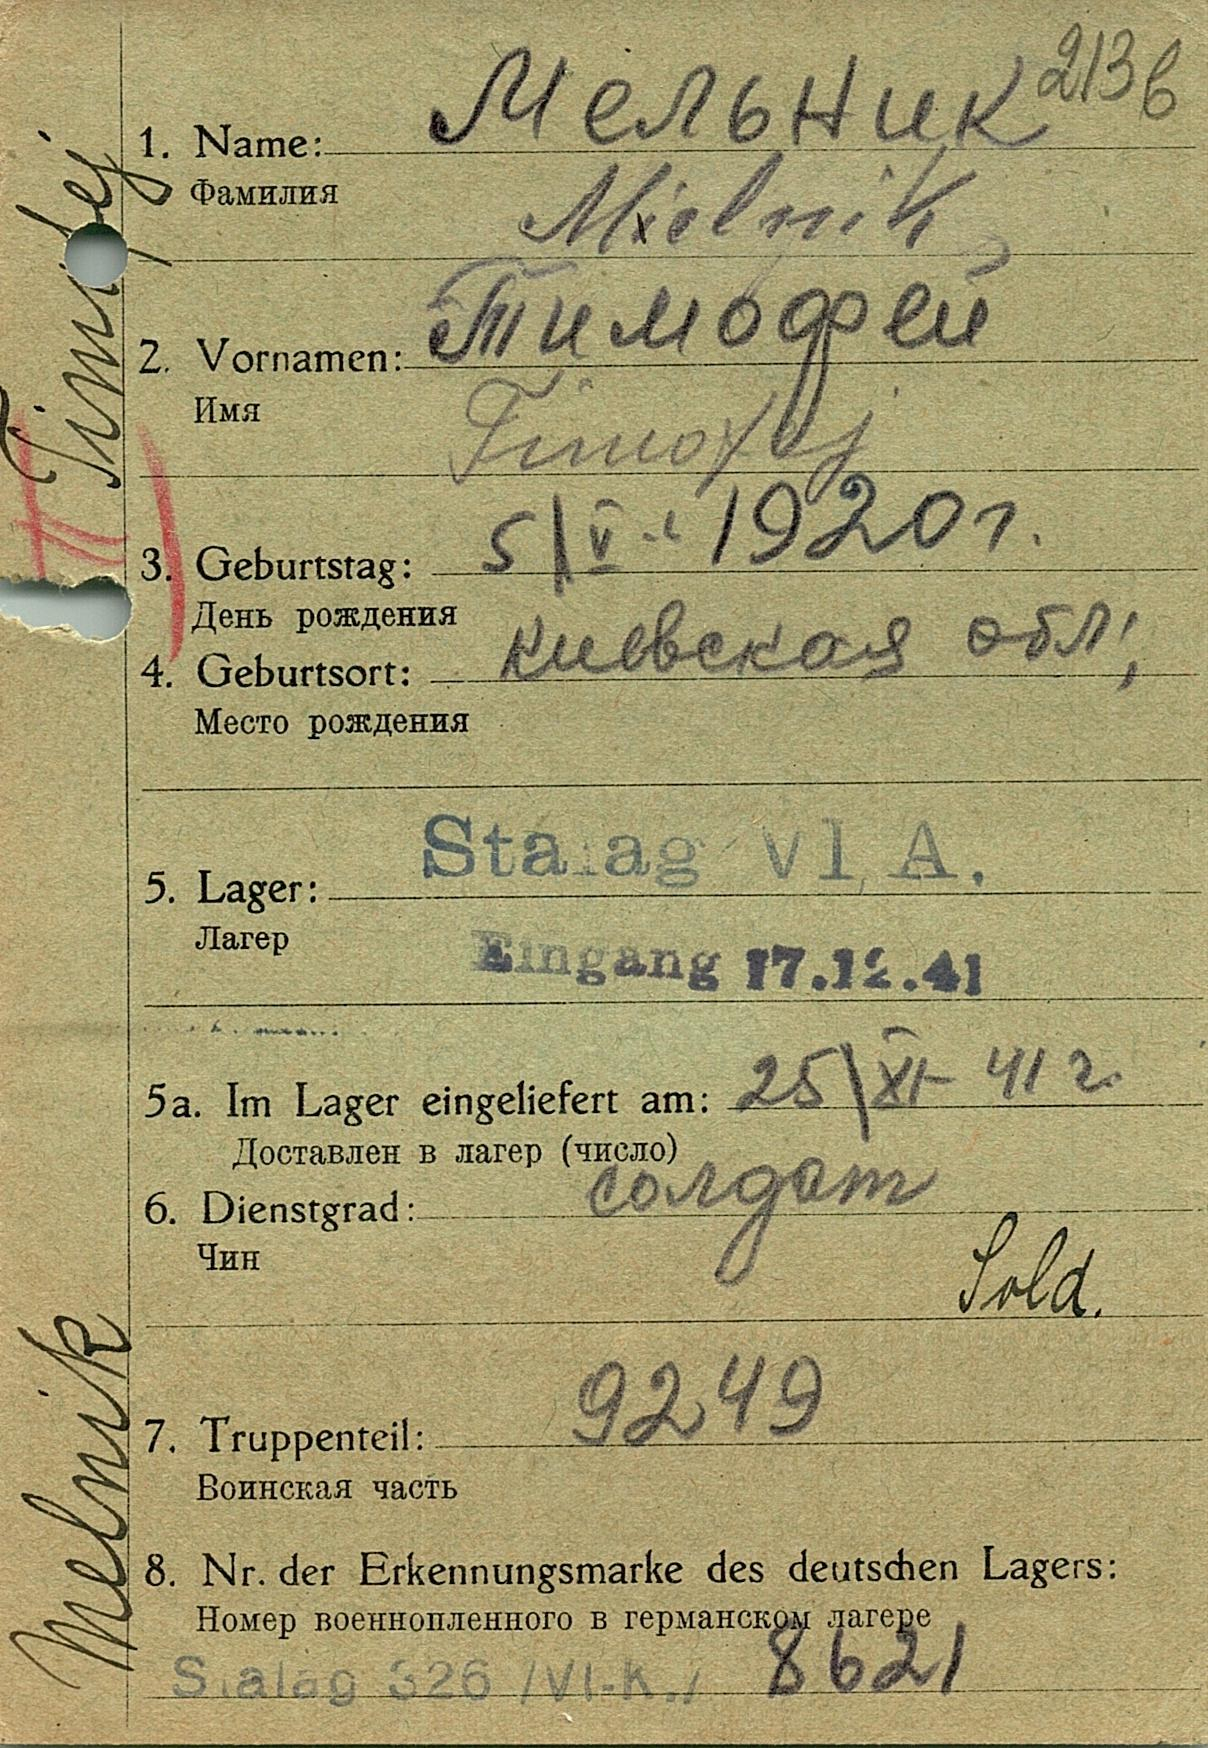 213 б
Мельник
1. Name:
Фамилия
Mielnik
Тимофей
2. Vornamen:
Имя
Timofej
5/V 1920 г.
3. Geburtstag:
День рождения
Киевская обл;
4. Geburtsort:
Место рождения
Stalag VI A.
5. Lager:
Лагер
Eingang 17.12.41
5a. Im Lager eingeliefert am: 25\XI 41 г.
Доставлен в лагер (число)
6. Dienstgrad: солдат
Чин
Sold.
7. Truppenteil: 9249
Воинская часть
8. Nr. der Erkennungsmarke des deutschen Lagers:
Номер военнопленного в германском лагере
Stalag 326 /VI-K./ 8621
Melnik Timofej